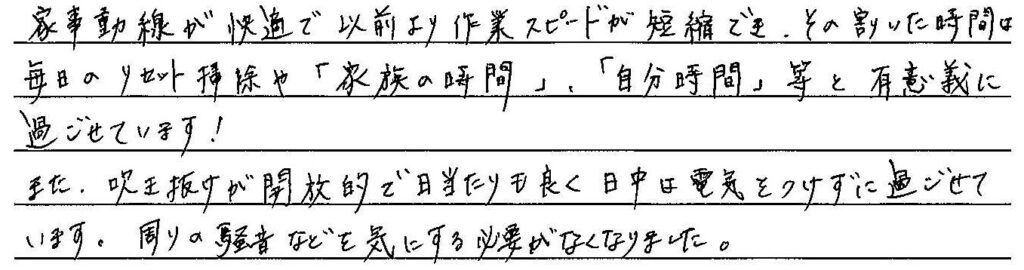 家事動線が快適で以前より作業スピードが短縮でき、その割いた時間は
毎日のリセット掃除や「家族の時間」、「自分時間」等と有意義に
過ごせています！
また、吹き抜けが開放的で日当たりも良く日中は電気をつけずに過ごせて
います。周りの騒音などを気にする必要がなくなりました。